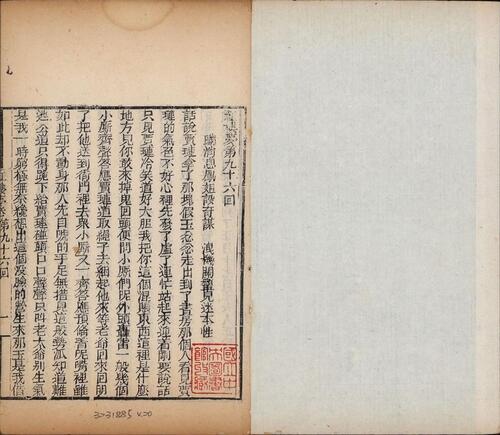 紅樓夢第九十六回
瞞消息鳳姐設奇謀　洩機關顰兒迷本性
話說賈璉拿了那塊假玉忿忿走出到了書房那個人看見賈
璉的氣色不好心裡先發了虛了連忙站起來迎着剛要說話
只見賈璉冷笑道好大胆我把你這個混賬東西這裡是什麼
地方兒你敢來掉鬼回頭便問小厮們呢外頭轟雷一般幾個
小厮齊聲答應賈璉道取繩子去綑起他來等老爺回來回明
了把他送到衙門裡去衆小厮又一齊答應預備着呢嘴裡雖
如此却不動身那人先自唬的手足無措見這般勢派知道難
逃公道只得跪下給賈璉碰頭口口聲聲只叫老太爺別生氣
是我一時窮極無奈纔想出這個沒臉的營生來那玉是我借
紅樓夢 第九十六回 一
3231885 v.20